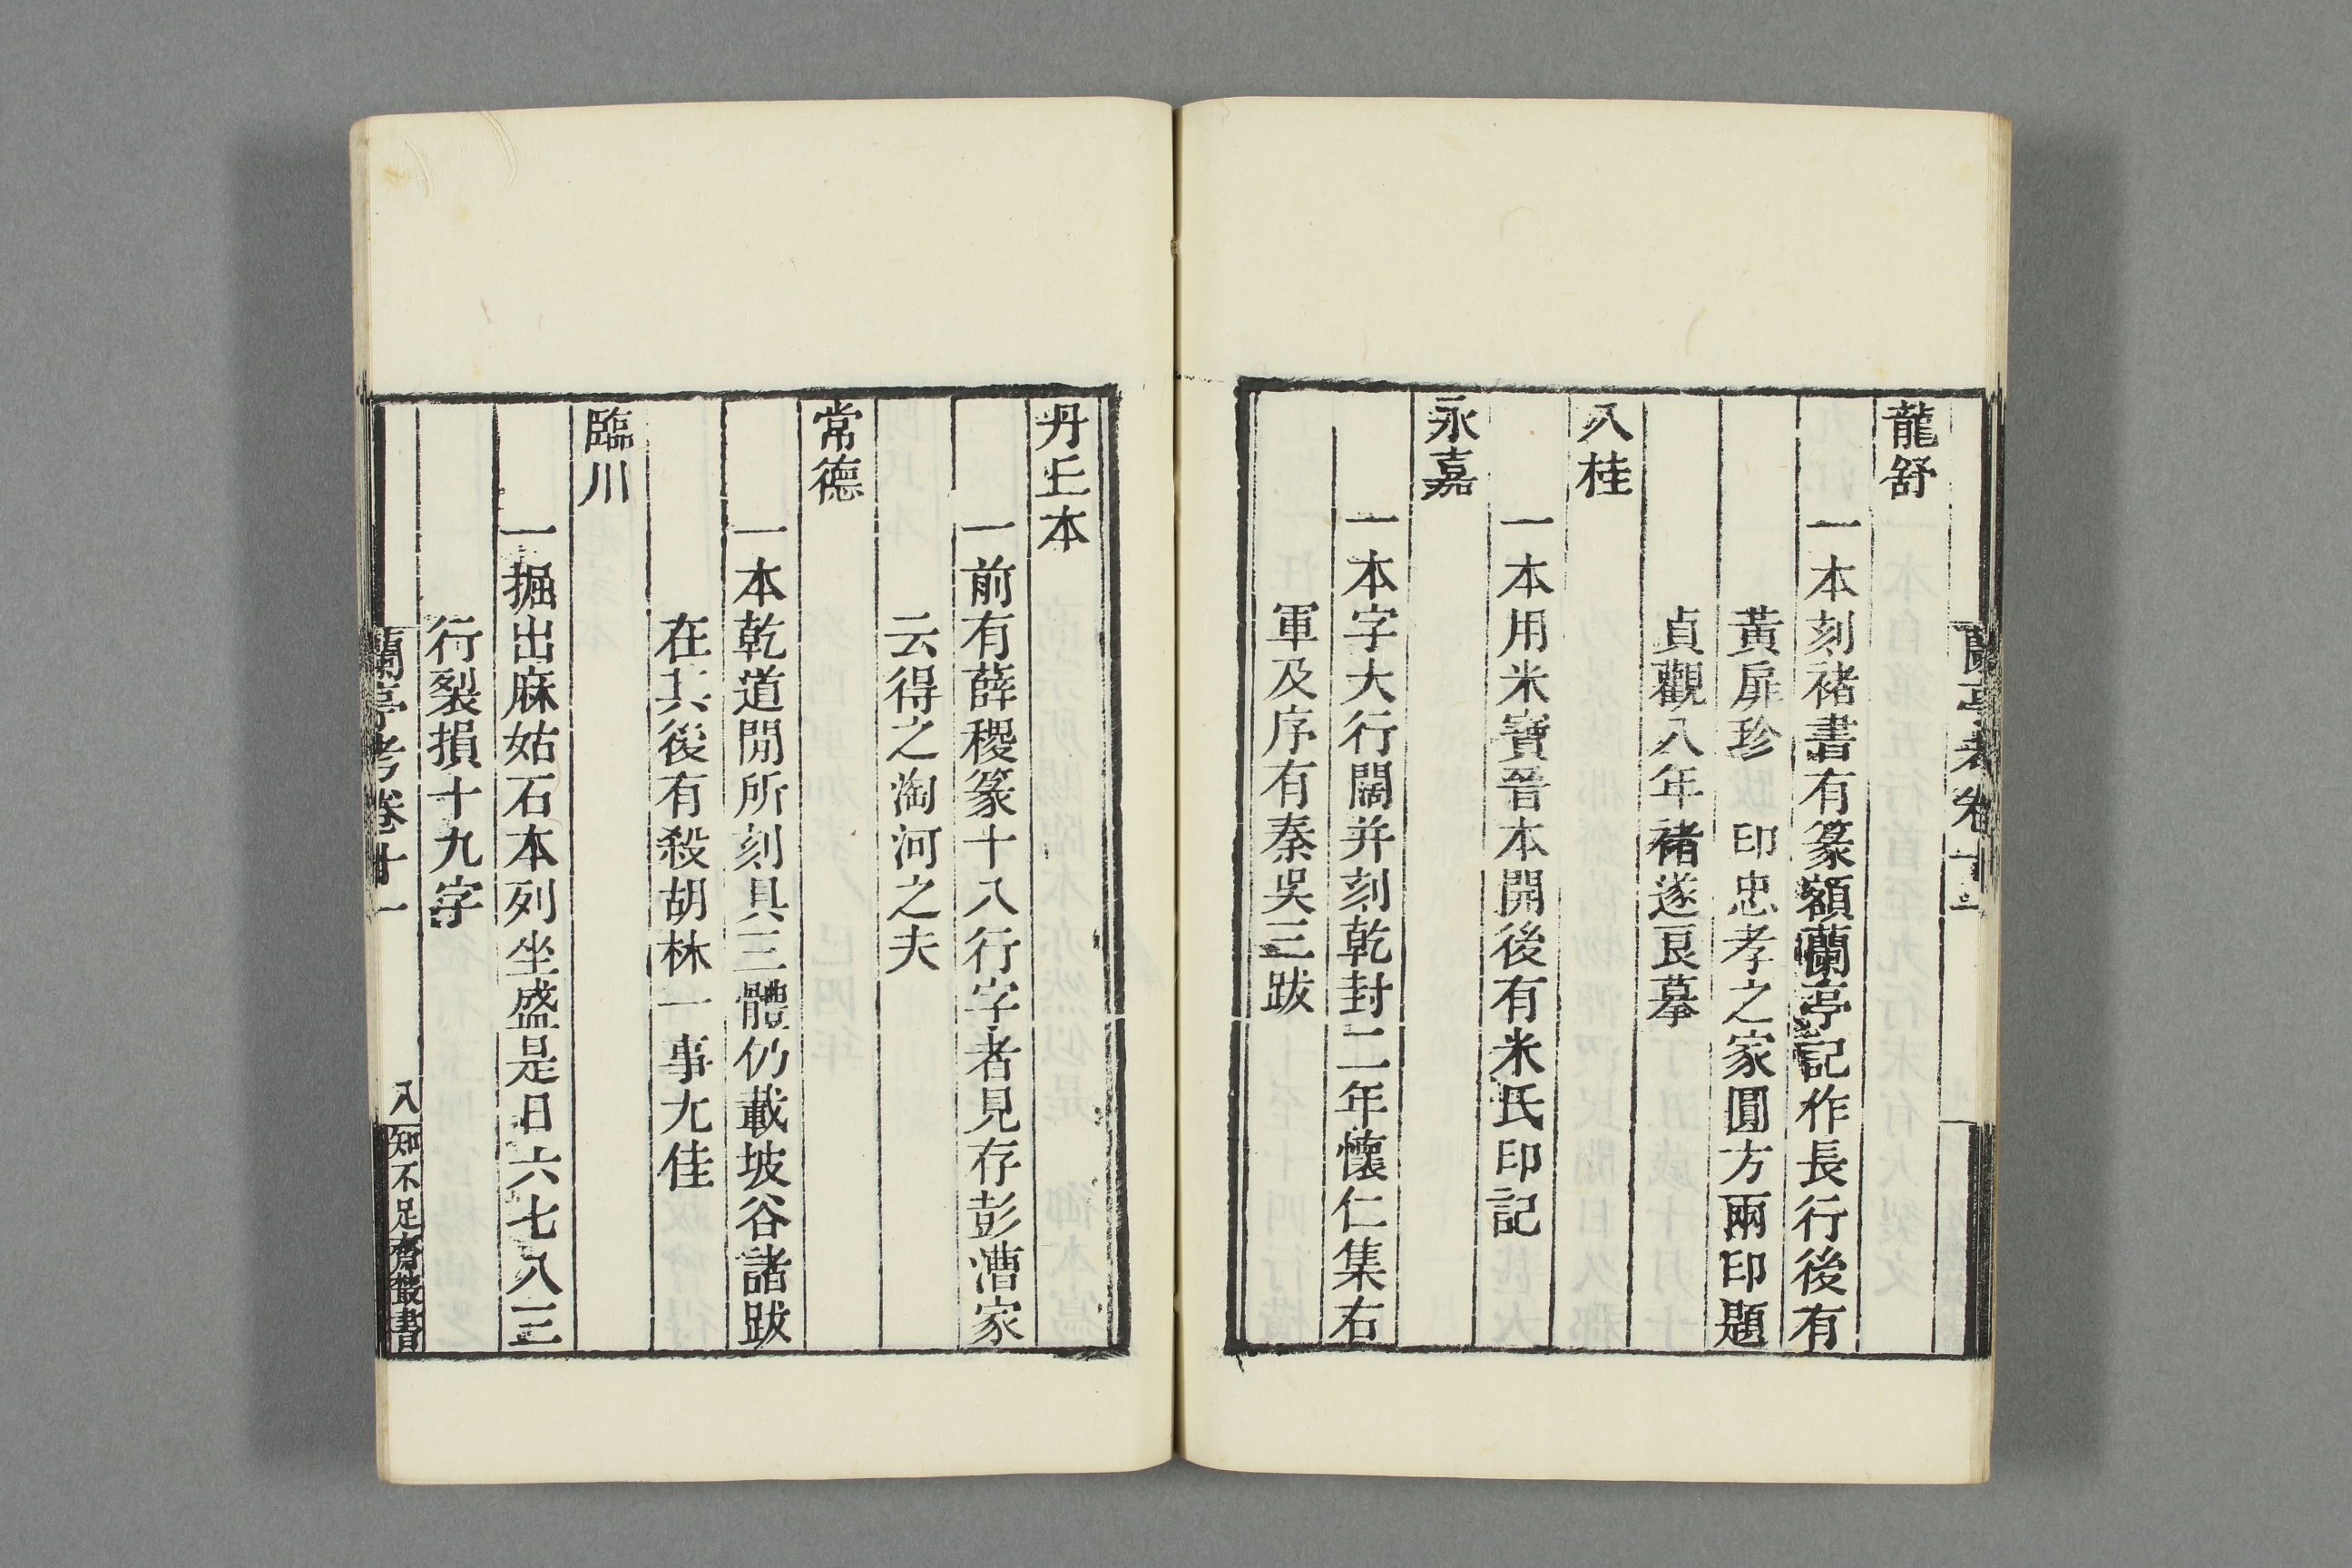 龍舒
一本刻褚書有篆額蘭亭記作長行後有
黃扉珍　印忠孝之家圓方兩印題
貞觀八年褚遂良摹
八桂
一本用米寶晉本開後有米氏印記
永嘉
一本字大行闊并刻乾封二年懷仁集右
軍及序有秦吳三跋
丹丘本
一前有薛稷篆十八行字者見存彭漕家
云得之淘河之夫
常德
一本乾道閒所刻具三體仍載坡谷諸跋
在其後有殺胡林一事尤佳
臨川
一掘出麻姑石本列坐盛是日六七八三
行裂損十九字
蘭亭考卷十一
八
知不足齋叢書